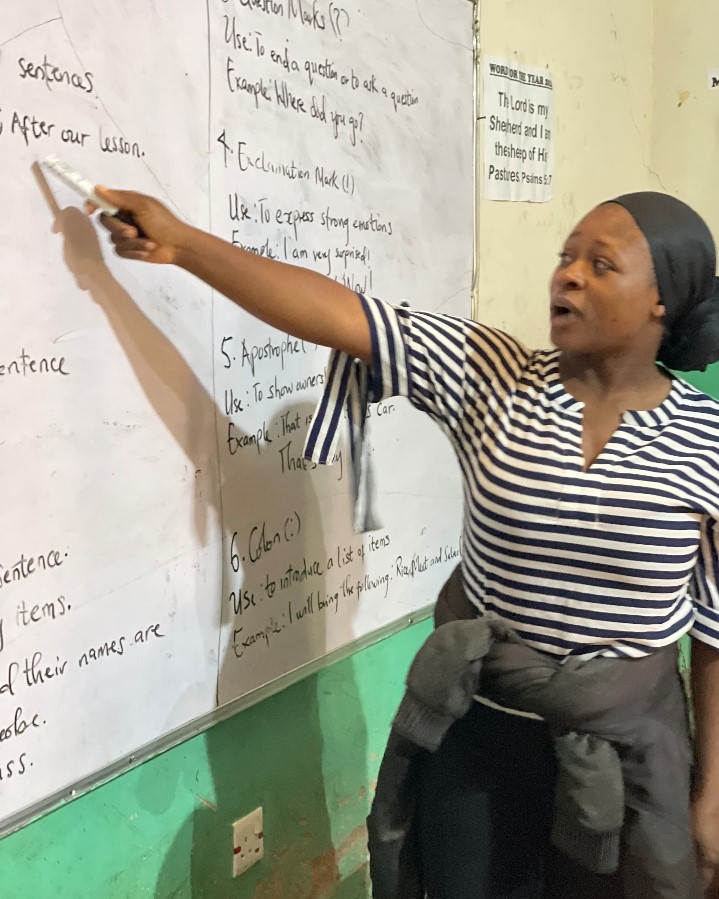 sentences
After our lesson.
entence
entence.
items.
d their names are
ss.
Question Marks (??
Use: To end a question or to ask a question
Example: Where did you go?
4. Exclamation Mark (!)
Use: To express strong emotions
Example: I am very surprised!
Wow!
5. Apostrophe(
Use: To show owners
Example: That is s Car.
That's my
6. Colon (:)
Use: to introduce a list of items
Example: I will bring the following: Rice, Meat and
WORD OR THE YEAR
The Lord is my
Shepherd and I am
the sheep of His
Pastures. Psalms